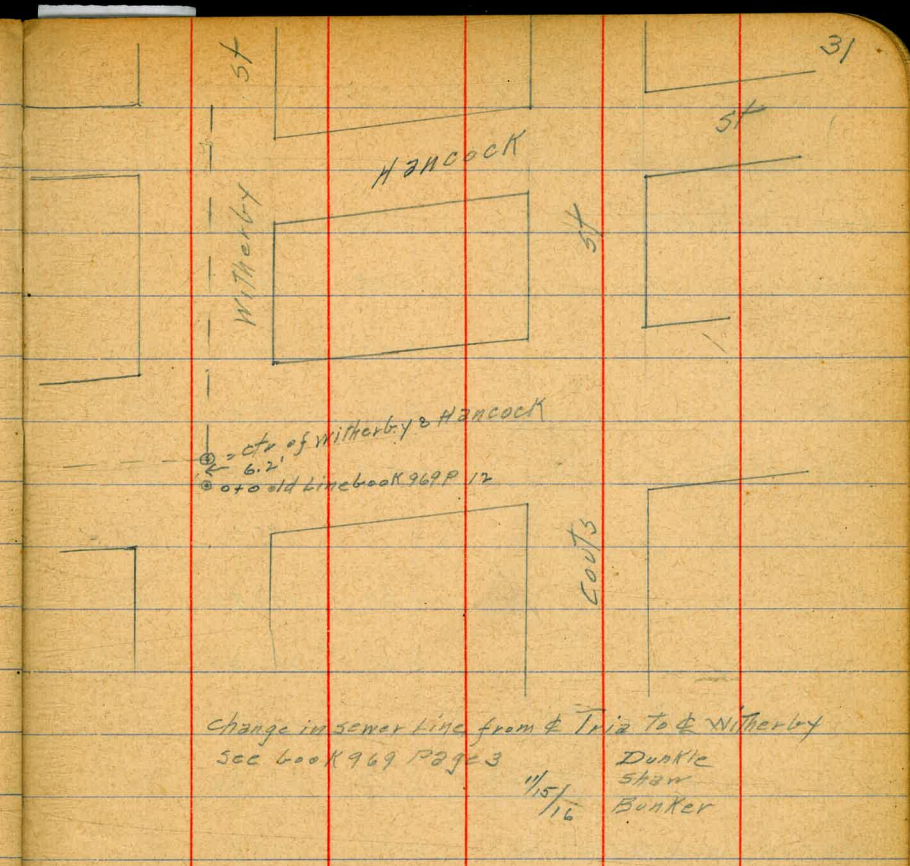 31
St
St
Hancock
Witherby
St
= ctr of Witherby & Hancock
6.2'
0+0 old Line book 969 P 12
Couts
Change in sewer Line from ℄ Tria to ℄ Witherby
See book 969 Page 3
Dunkle
Shaw
11/15/16
Bunker